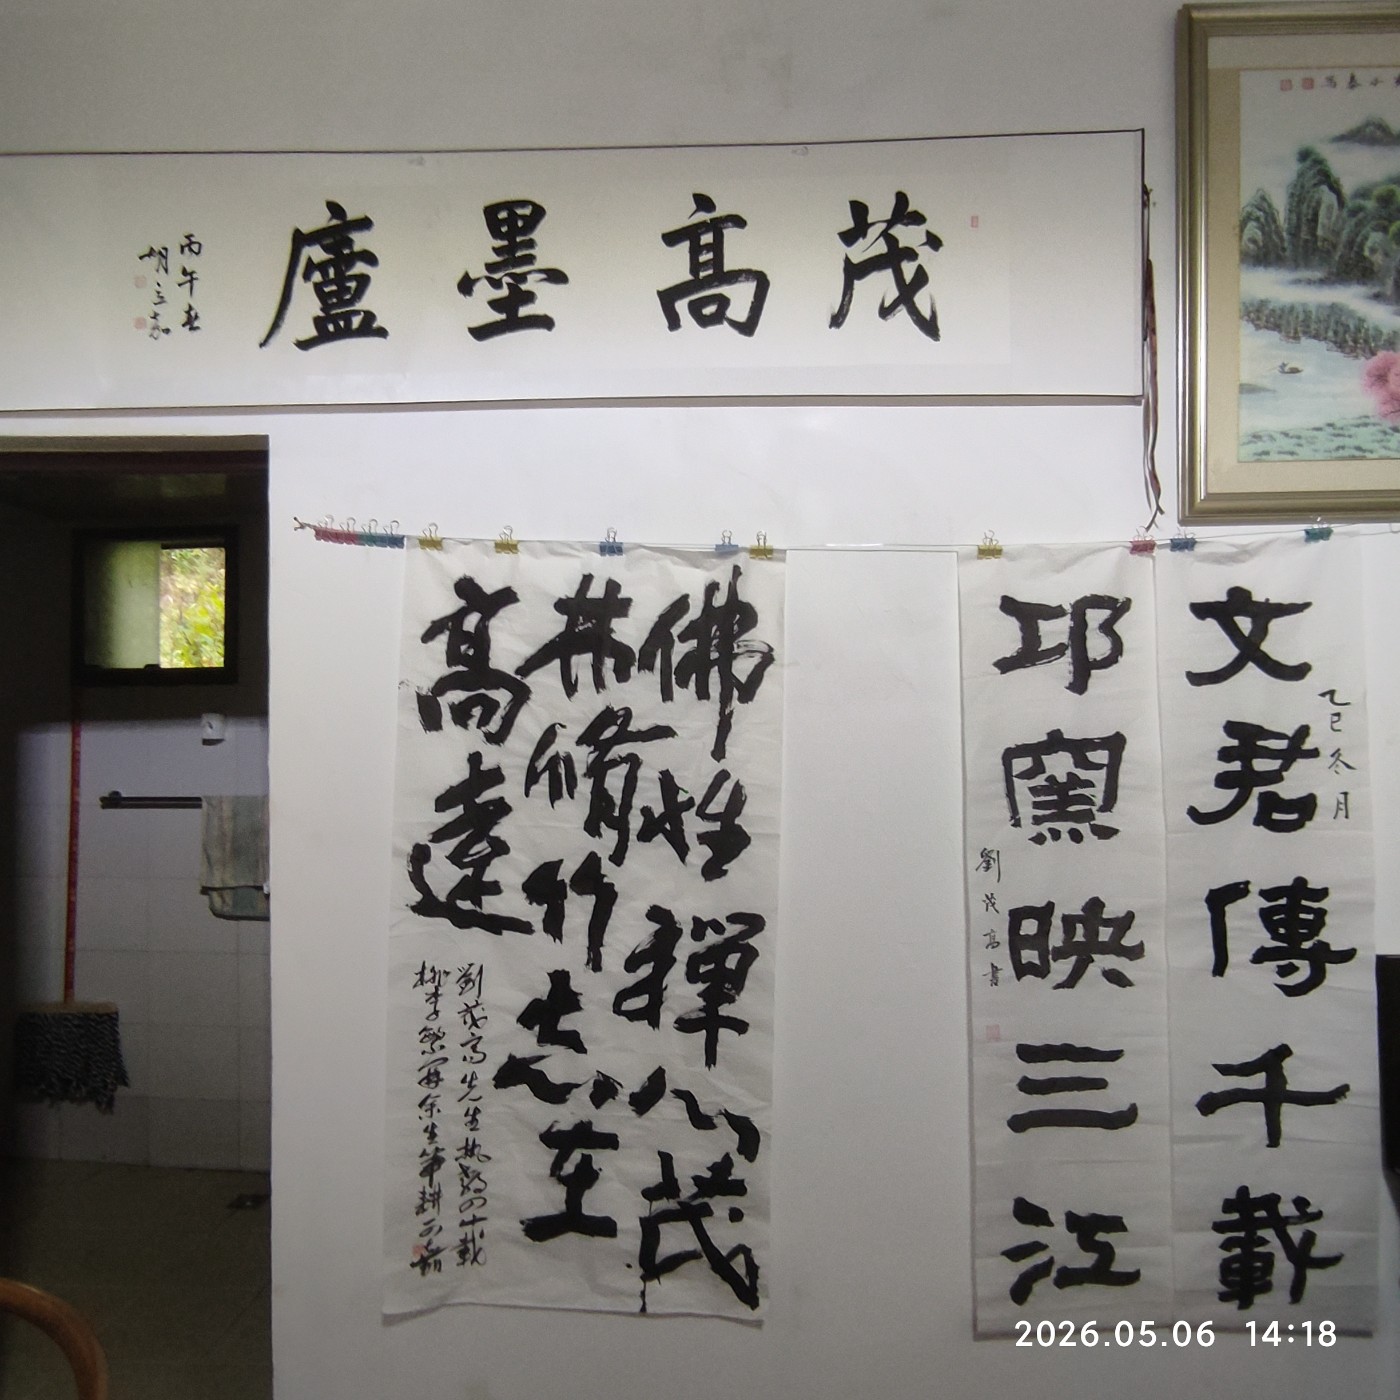 茂高墨廬
丙午春
胡立嘉
佛性禪心茂
林修竹志在
高達
劉茂高先生執教四十載
桃李繁容余生筆耕可嘉
文君傳千載
乙巳冬月
邛窯映三江
劉茂高書
2026.05.06 14:18